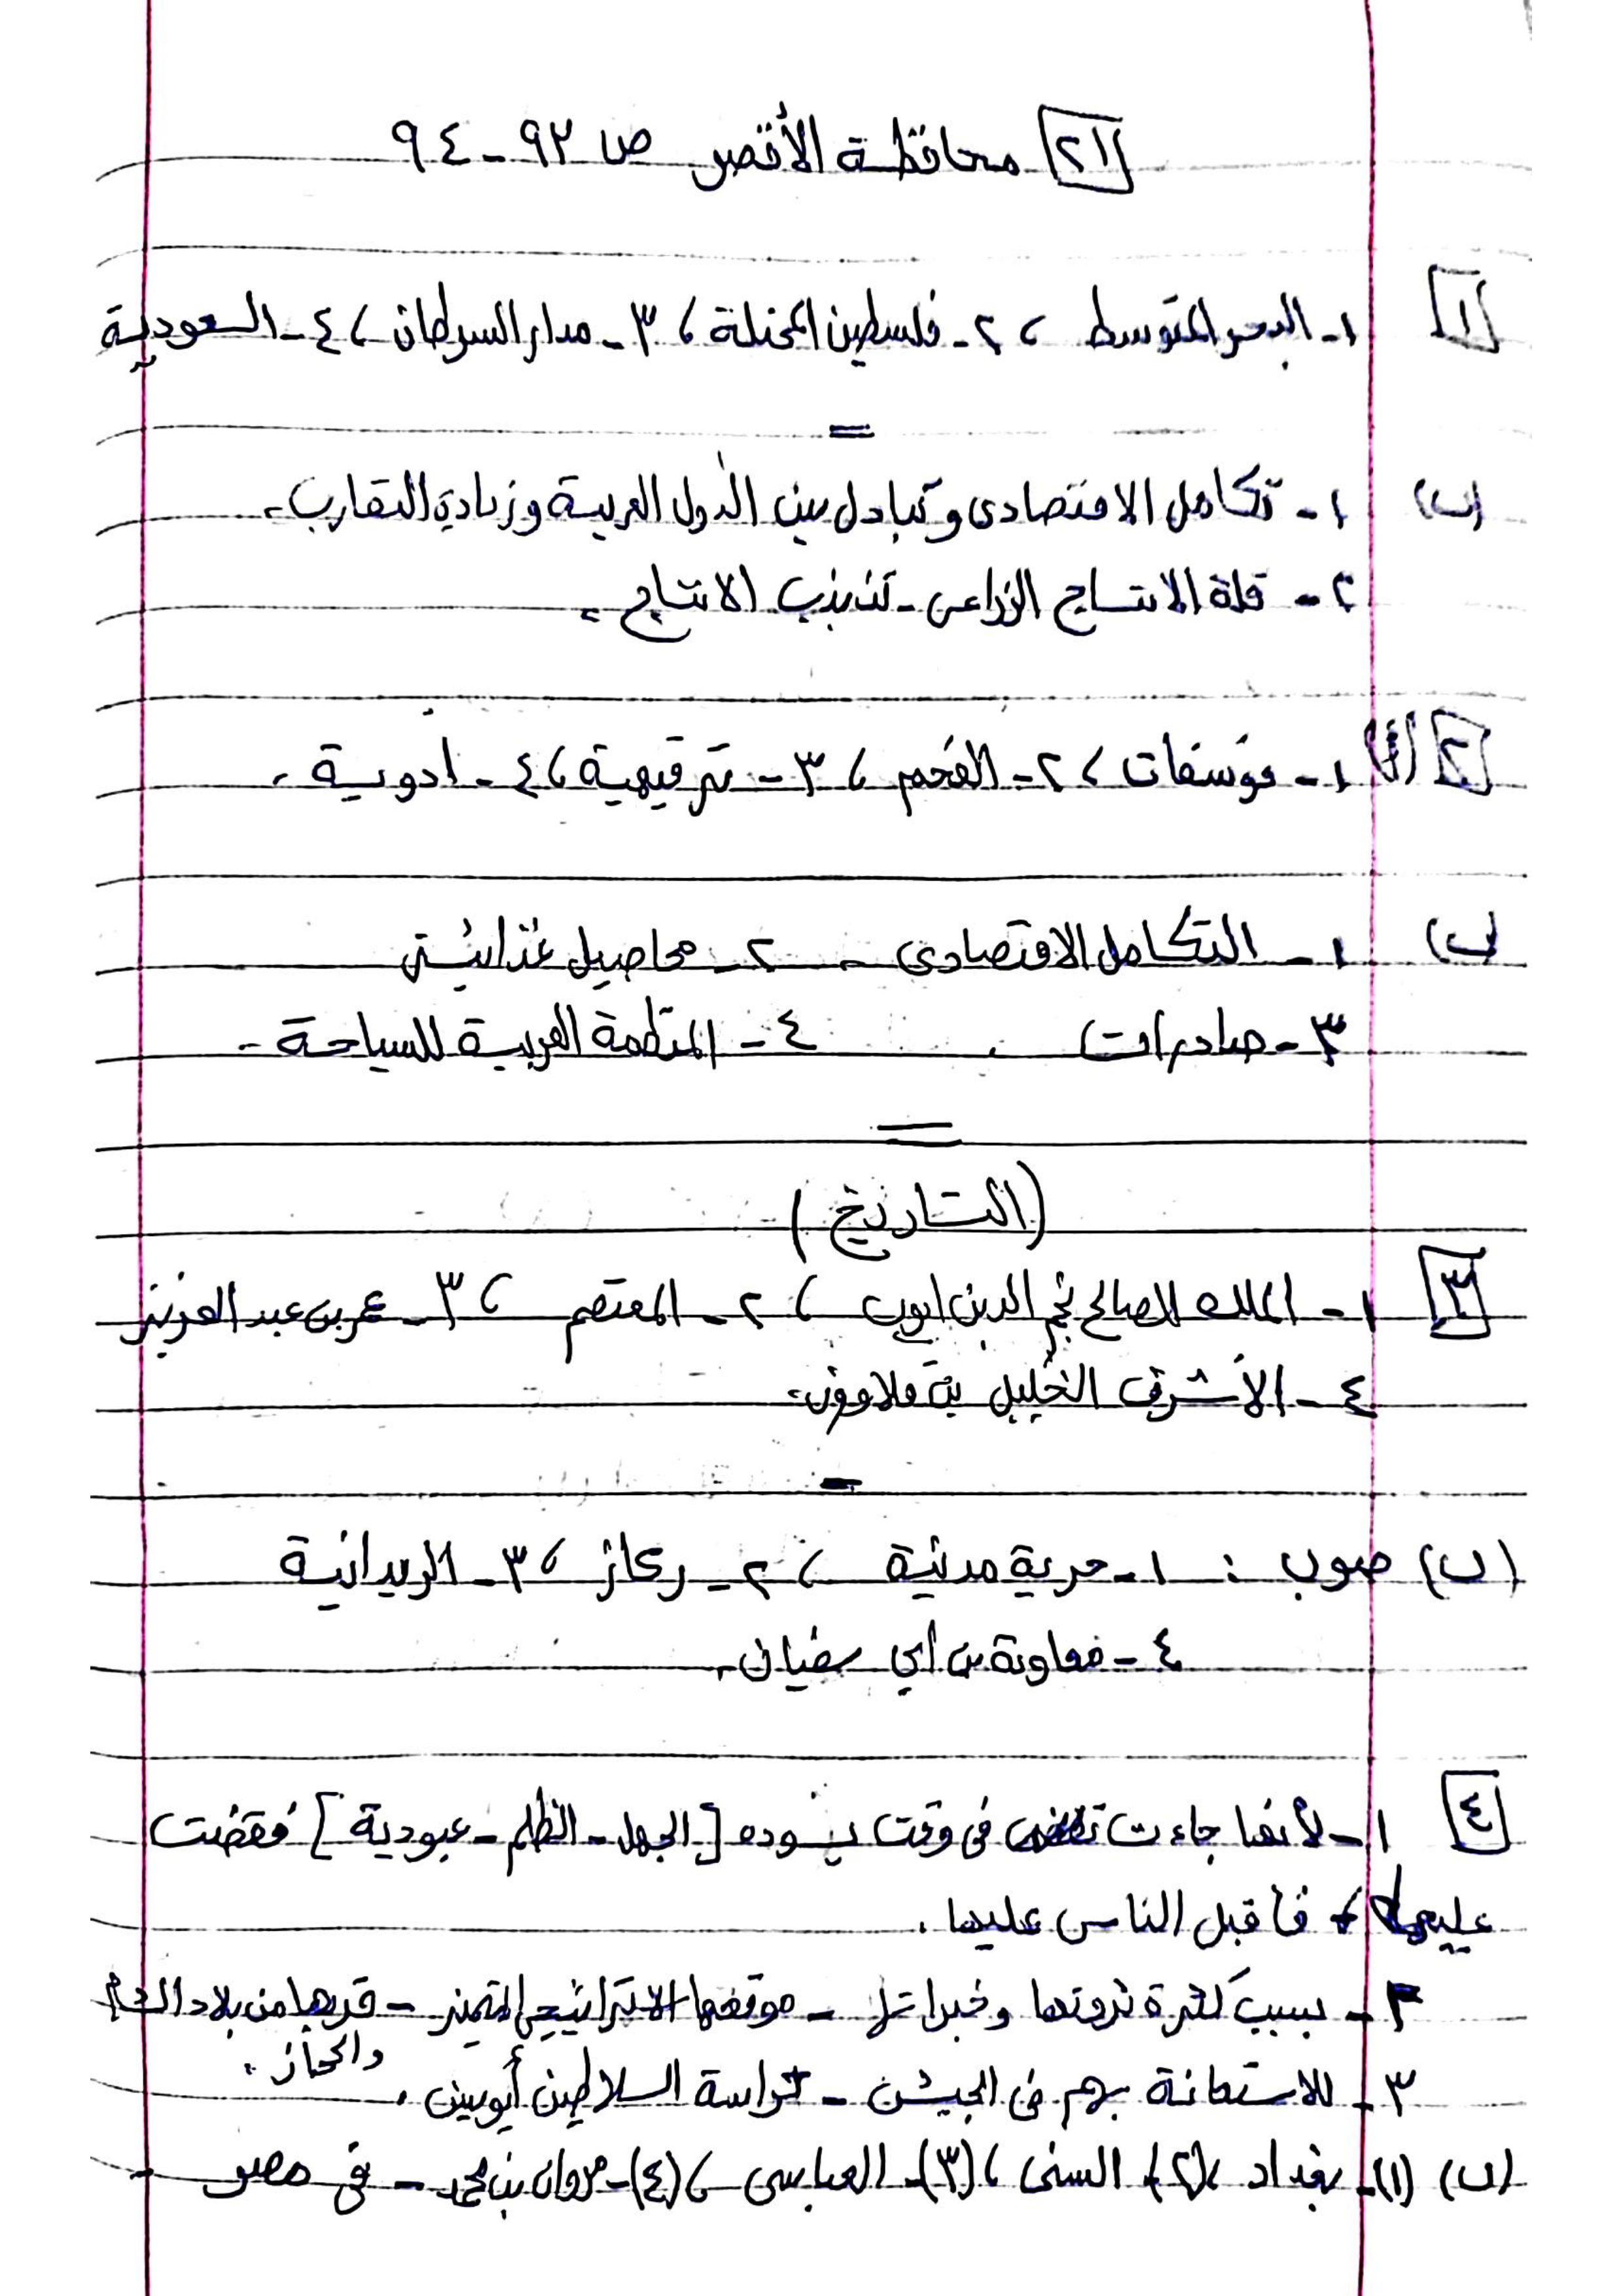 [٢١] محافظة الأقصر ص ٩٢ - ٩٤
[١] ١- البحر المتوسط ، ٢- فلسطين المحتلة ، ٣- مدار السرطان ، ٤- السعودية
(ب) ١- تكامل الاقتصادى وتبادل بين الدول العربية وزيادة التقارب.
٢- قلة الانتاج الزراعى - تذبذب الانتاج.
[٢] (أ) ١- فوسفات ، ٢- الفحم ، ٣- ترفيهية ، ٤- ادوية.
(ب) ١- التكامل الاقتصادى - ٢- محاصيل غذائية
٣- صادرات ٤- المنظمة العربية للسياحة -
(التاريخ)
[٣] ١- الملك الصالح نجم الدين ايوب ، ٢- المعتصم ، ٣- عمر بن عبد العزيز
٤- الأشرف الخليل بن قلاوون.
(ب) صوب : ١- حرية مدنية ، ٢- ركاز ، ٣- الريدانية
٤- معاوية بن أبي سفيان.
[٤] ١- لأنها جاءت فى وقت يسوده [الجهل - الظلم - عبودية] فقضت
عليها فأقبل الناس عليها.
٢- بسبب كثرة ثروتها وخيراتها - موقعها الاستراتيجى المتميز - قربها من بلاد الشام
والحجاز.
٣- للاستعانة بهم فى الجيش - حراسة السلاطين أيوبيين.
(ب) (١)- بغداد ، (٢) السنى ، (٣)- العباسى ، (٤)- مروان بن محمد - فى مصر -